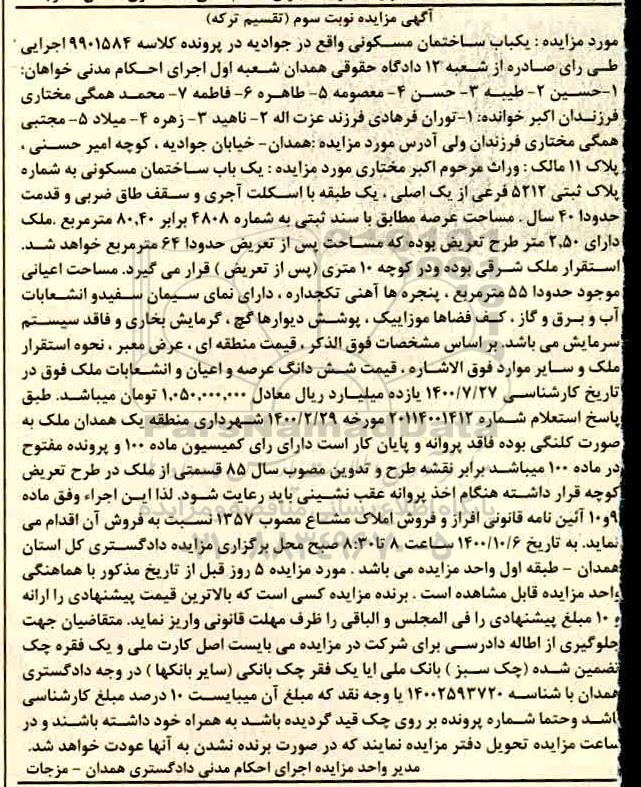 آگهی مزایده نوبت سوم (تقسیم ترکه)
مورد مزایده : یکباب ساختمان مسکونی واقع در جوادیه در پرونده کلاسه ۹۹۰۱۵۸۴ اجرایی
طی رای صادره از شعبه ۱۲ دادگاه حقوقی همدان شعبه اول اجرای احکام مدنی خواهان:
۱-حسین ۲- طیبه ۳- حسن ۴- معصومه ۵- طاهره ۶- فاطمه ۷- محمد همگی مختاری
فرزندان اکبر خوانده: ۱-توران فرهادی فرزند عزت اله ۲- ناهید ۳- زهره ۴- میلاد ۵- مجتبی
همگی مختاری فرزندان ولی آدرس مورد مزایده :همدان- خیابان جوادیه ، کوچه امیر حسنی ،
پلاک ۱۱ مالک : وراث مرحوم اکبر مختاری مورد مزایده : یک باب ساختمان مسکونی به شماره
پلاک ثبتی ۵۲۱۲ فرعی از یک اصلی ، یک طبقه با اسکلت آجری و سقف طاق ضربی و قدمت
حدودا ۴۰ سال . مساحت عرصه مطابق با سند ثبتی به شماره ۴۸۰۸ برابر ۸۰,۴۰ مترمربع .ملک
دارای ۲,۵۰ متر طرح تعریض بوده که مساحت پس از تعریض حدودا ۶۴ مترمربع خواهد شد.
استقرار ملک شرقی بوده ودر کوچه ۱۰ متری (پس از تعریض ) قرار می گیرد. مساحت اعیانی
موجود حدودا ۵۵ مترمربع ، پنجره ها آهنی تکجداره ، دارای نمای سیمان سفیدو انشعابات
آب و برق و گاز ، کف فضاها موزاییک ، پوشش دیوارها گچ ، گرمایش بخاری و فاقد سیستم
سرمایش می باشد. بر اساس مشخصات فوق الذکر ، قیمت منطقه ای ، عرض معبر ، نحوه استقرار
ملک و سایر موارد فوق الاشاره ، قیمت شش دانگ عرصه و اعیان و انشعابات ملک فوق در
تاریخ کارشناسی ۱۴۰۰/۷/۲۷ یازده میلیارد ریال معادل ۱,۰۵۰,۰۰۰,۰۰۰ تومان میباشد. طبق
پاسخ استعلام شماره ۲۰۱۱۴۰۰۱۴۱۲ مورخه ۱۴۰۰/۲/۲۹ شهرداری منطقه یک همدان ملک به
صورت کلنگی بوده فاقد پروانه و پایان کار است دارای رای کمیسیون ماده ۱۰۰ و پرونده مفتوح
در ماده ۱۰۰ میباشد برابر نقشه طرح و تدوین مصوب سال ۸۵ قسمتی از ملک در طرح تعریض
کوچه قرار داشته هنگام اخذ پروانه عقب نشینی باید رعایت شود. لذا این اجراء وفق ماده
۹و۱۰ آئین نامه قانونی افراز و فروش املاک مشاع مصوب ۱۳۵۷ نسبت به فروش آن اقدام می
نماید. به تاریخ ۱۴۰۰/۱۰/۶ ساعت ۸ تا ۸:۳۰ صبح محل برگزاری مزایده دادگستری کل استان
همدان - طبقه اول واحد مزایده می باشد . مورد مزایده ۵ روز قبل از تاریخ مذکور با هماهنگی
واحد مزایده قابل مشاهده است . برنده مزایده کسی است که بالاترین قیمت پیشنهادی را ارائه
و ۱۰ مبلغ پیشنهادی را فی المجلس و الباقی را ظرف مهلت قانونی واریز نماید. متقاضیان جهت
جلوگیری از اطاله دادرسی برای شرکت در مزایده می بایست اصل کارت ملی و یک فقره چک
تضمین شده (چک سبز ) بانک ملی ایا یک فقر چک بانکی (سایر بانکها ) در وجه دادگستری
همدان با شناسه ۱۴۰۰۲۵۹۳۷۲۰ یا وجه نقد که مبلغ آن میبایست ۱۰ درصد مبلغ کارشناسی
باشد وحتما شماره پرونده بر روی چک قید گردیده باشد به همراه خود داشته باشند و در
ساعت مزایده تحویل دفتر مزایده نمایند که در صورت برنده نشدن به آنها عودت خواهد شد.
مدیر واحد مزایده اجرای احکام مدنی دادگستری همدان - مزجات